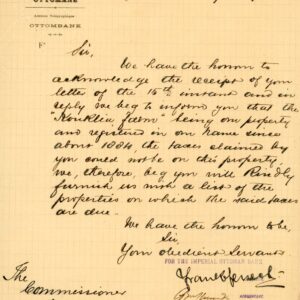 OTTOMANE
Adresse Télégraphique
OTTOMBANK
Sir,
We have the honor to
acknowledge the receipt of your
letter of the 15th instant and in
reply we beg to inform you that the
"Kouklia farm" being our property
and registered in our name since
about 1884, the taxes claimed by
you could not be on this property,
we, therefore, beg you will kindly
furnish us with a list of the
properties on which the said taxes
are due.
We have the honor to be,
Sir,
Your obedient Servants
FOR THE IMPERIAL OTTOMAN BANK
The
Commissioner